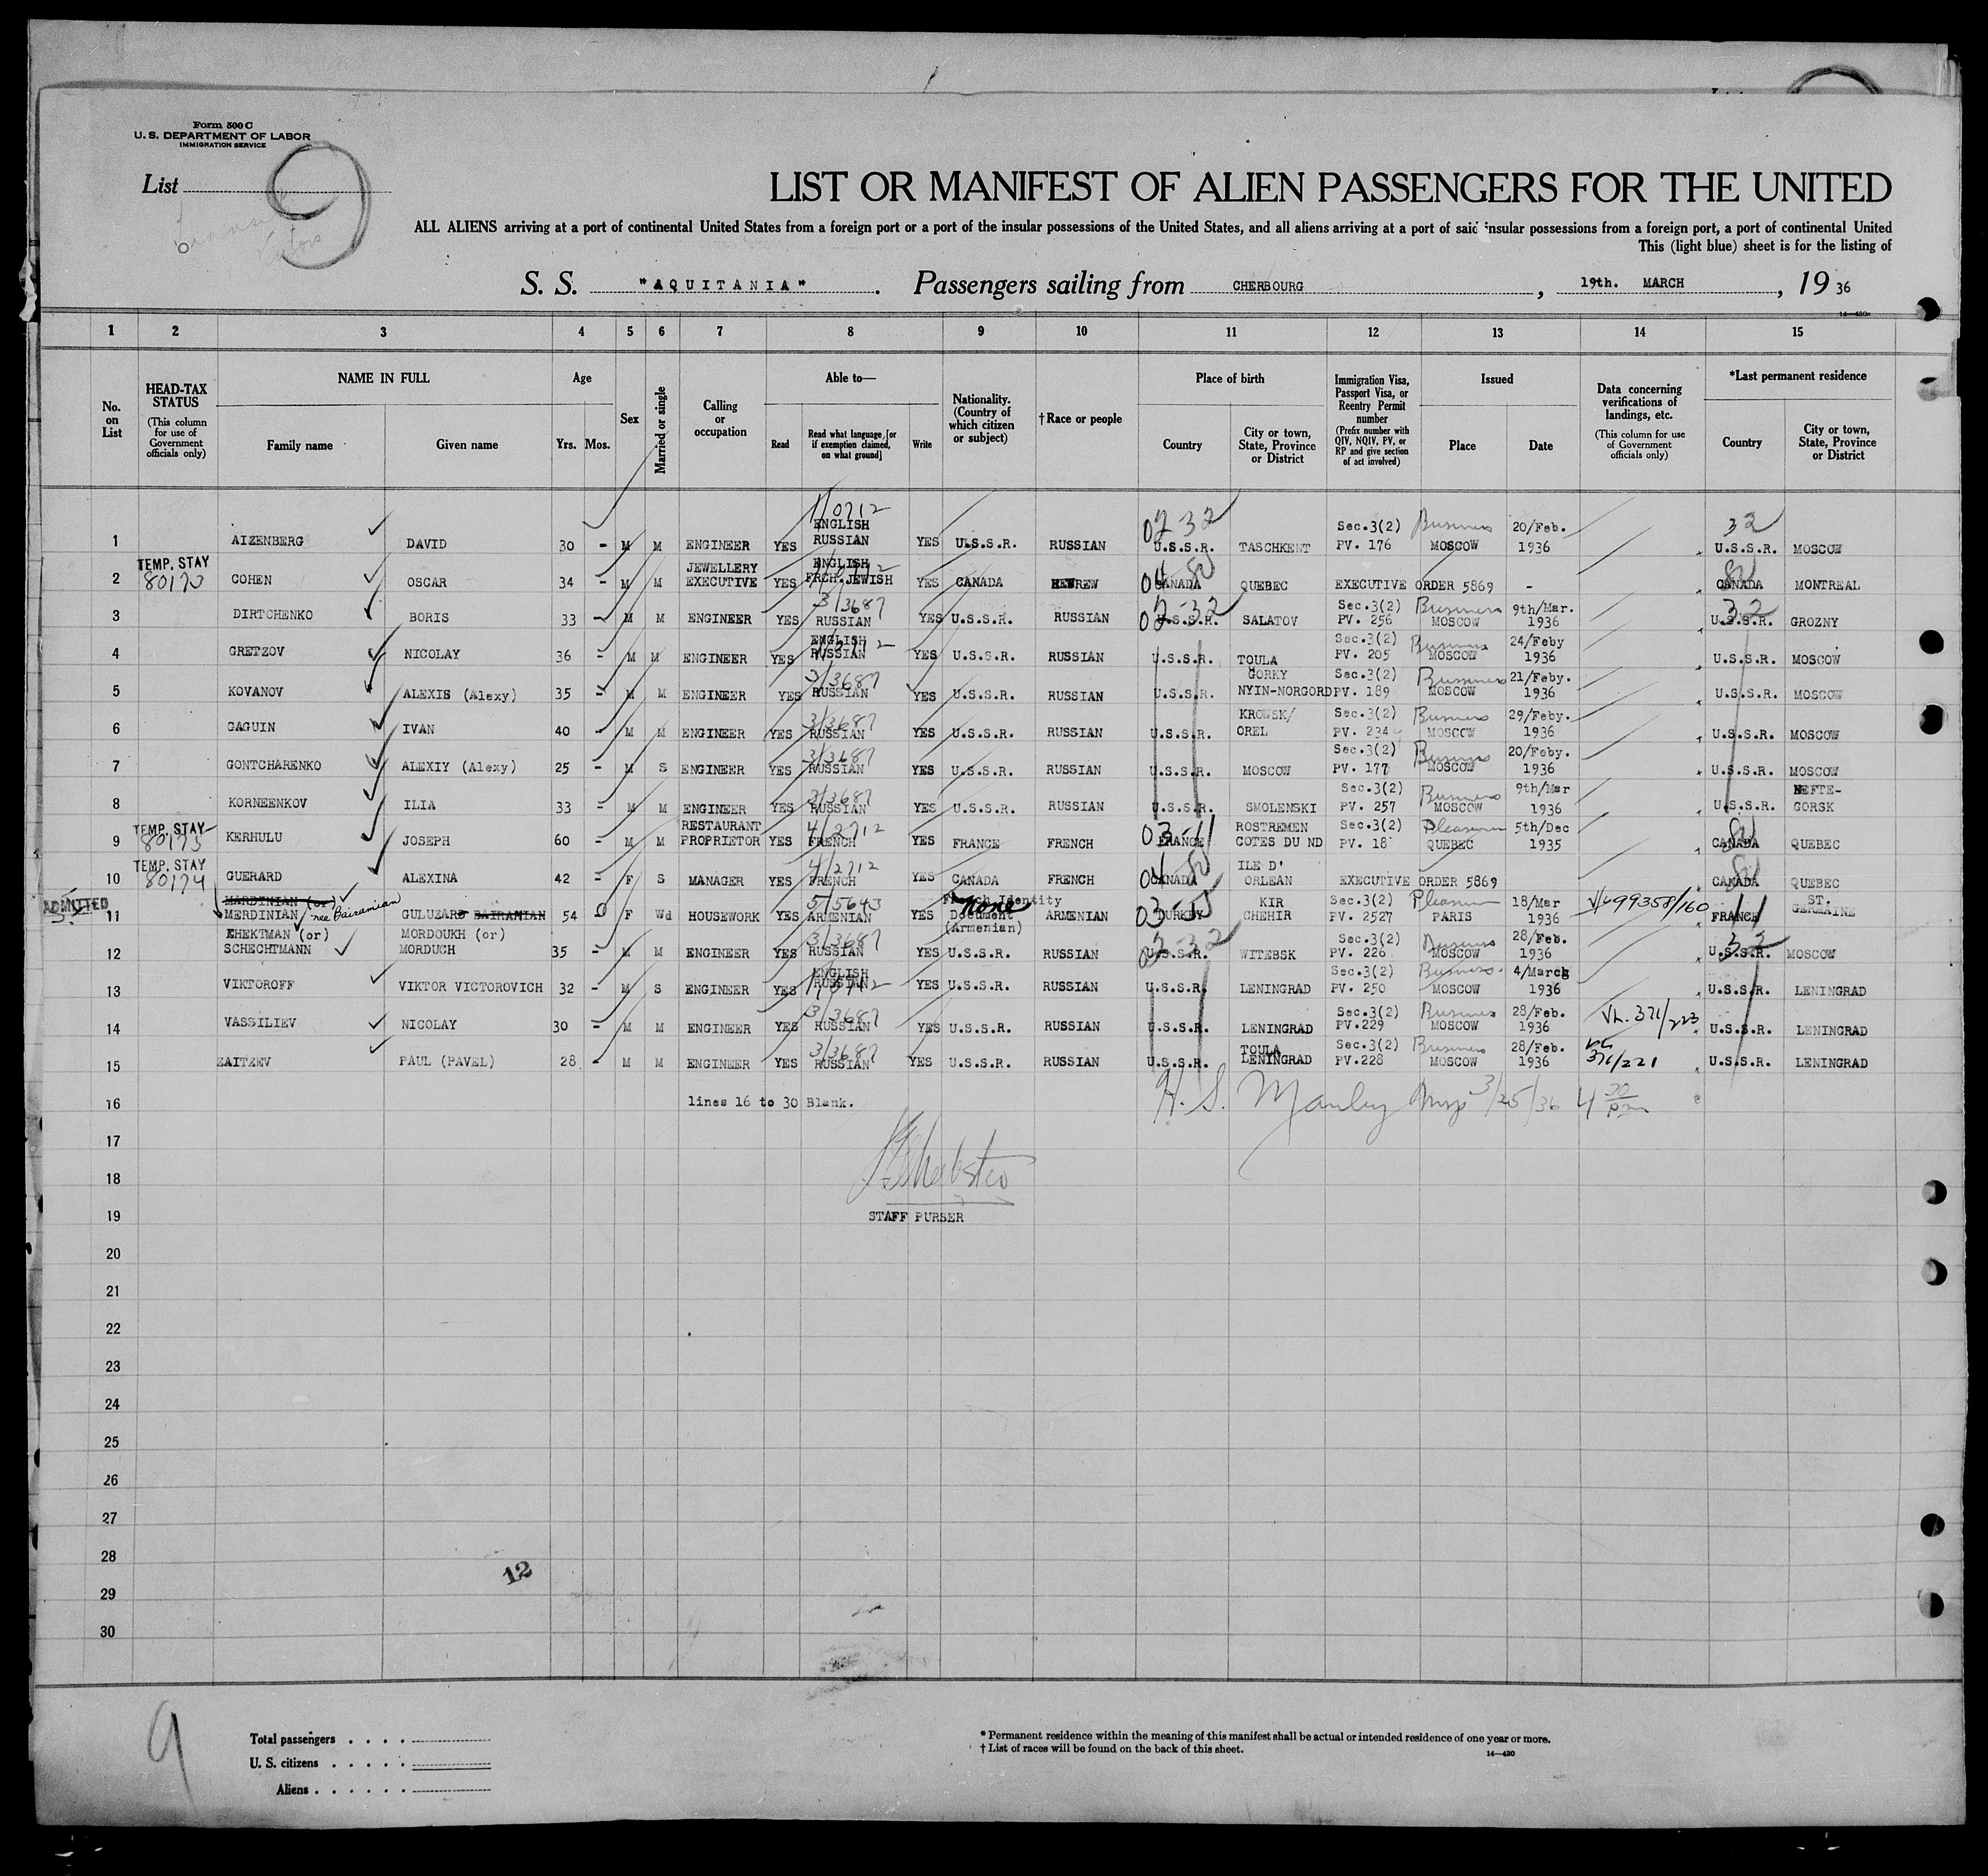 Form 500 C
U. S. DEPARTMENT OF LABOR
IMMIGRATION SERVICE
List 9
LIST OR MANIFEST OF ALIEN PASSENGERS FOR THE UNITED
ALL ALIENS arriving at a port of continental United States from a foreign port or a port of the insular possessions of the United States, and all aliens arriving at a port of said insular possessions from a foreign port, a port of continental United
This (light blue) sheet is for the listing of
S. S. "AQUITANIA". Passengers sailing from CHERBOURG, 19th. MARCH, 19 36
14—430a
1 2 3 4 5 6 7 8 9 10 11 12 13 14 15
No. on List
HEAD-TAX STATUS (This column for use of Government officials only)
NAME IN FULL Family name Given name
Age Yrs. Mos.
Sex
Married or single
Calling or occupation
Able to— Read Read what language [or if exemption claimed, on what ground] Write
Nationality. (Country of which citizen or subject)
† Race or people
Place of birth Country City or town, State, Province or District
Immigration Visa, Passport Visa, or Reentry Permit number (Prefix number with QIV, NQIV, PV, or RP and give section of act involved)
Issued Place Date
Data concerning verifications of landings, etc. (This column for use of Government officials only)
*Last permanent residence Country City or town, State, Province or District
1 AIZENBERG DAVID 30 - M M ENGINEER YES ENGLISH RUSSIAN YES U.S.S.R. RUSSIAN 02-32 U.S.S.R. TASCHKENT Sec.3(2) PV. 176 Business MOSCOW 20/Feb. 1936 32 U.S.S.R. MOSCOW
2 TEMP. STAY COHEN OSCAR 34 - M M JEWELLERY EXECUTIVE YES ENGLISH FRCH.JEWISH YES CANADA HEBREW CANADA QUEBEC EXECUTIVE ORDER 5869 - CANADA MONTREAL
3 DIRTCHENKO BORIS 33 - M M ENGINEER YES 3/3687 RUSSIAN YES U.S.S.R. RUSSIAN 02-32 U.S.S.R. SALATOV Sec.3(2) PV. 256 Business MOSCOW 9th/Mar. 1936 32 U.S.S.R. GROZNY
4 GRETZOV NICOLAY 36 - M M ENGINEER YES ENGLISH RUSSIAN YES U.S.S.R. RUSSIAN U.S.S.R. TOULA Sec.3(2) PV. 205 Business MOSCOW 24/Feby 1936 U.S.S.R. MOSCOW
5 KOVANOV ALEXIS (Alexy) 35 - M M ENGINEER YES 3/3687 RUSSIAN YES U.S.S.R. RUSSIAN U.S.S.R. GORKY NYIN-NORGORD Sec.3(2) PV. 189 Business MOSCOW 21/Feby. 1936 U.S.S.R. MOSCOW
6 GAGUIN IVAN 40 - M M ENGINEER YES 3/3687 RUSSIAN YES U.S.S.R. RUSSIAN U.S.S.R. KROWSK/ OREL Sec.3(2) PV. 234 Business MOSCOW 29/Feby. 1936 U.S.S.R. MOSCOW
7 GONTCHARENKO ALEXIY (Alexy) 25 - M S ENGINEER YES 3/3687 RUSSIAN YES U.S.S.R. RUSSIAN U.S.S.R. MOSCOW Sec.3(2) PV. 177 Business MOSCOW 20/Feby. 1936 U.S.S.R. MOSCOW
8 KORNEENKOV ILIA 33 - M M ENGINEER YES 3/3687 RUSSIAN YES U.S.S.R. RUSSIAN U.S.S.R. SMOLENSKI Sec.3(2) PV. 257 Business MOSCOW 9th/Mar 1936 U.S.S.R. NEFTE-GORSK
9 TEMP. STAY 80175 KERHULU JOSEPH 60 - M M RESTAURANT PROPRIETOR YES 4/2712 FRENCH YES FRANCE FRENCH 03-11 FRANCE ROSTREMEN COTES DU ND Sec.3(2) PV. 18 Pleasure QUEBEC 5th/Dec 1935 CANADA QUEBEC
10 TEMP. STAY 80174 GUERARD ALEXINA 42 - F S MANAGER YES 4/2712 FRENCH YES CANADA FRENCH CANADA ILE D' ORLEAN EXECUTIVE ORDER 5869 CANADA QUEBEC
ADMITTED 11 MARDINIAN (or) MERDINIAN nee Bairamian GULUZARD BAIRAMIAN 54 F Wd HOUSEWORK YES 5/5643 ARMENIAN YES French Identity Document (Armenian) None ARMENIAN 03-55 TURKEY KIR CHEHIR Sec.3(2) PV. 2527 Pleasure PARIS 18/Mar 1936 V/699358/160 FRANCE 11 ST. GERMAINE
12 KHEKTMAN (or) SCHECHTMANN MORDOUKH (or) MORDUCH 35 - M M ENGINEER YES 3/3687 RUSSIAN YES U.S.S.R. RUSSIAN 02-32 U.S.S.R. WITEBSK Sec.3(2) PV. 226 Business MOSCOW 28/Feb. 1936 32 U.S.S.R. MOSCOW
13 VIKTOROFF VIKTOR VICTOROVICH 32 - M S ENGINEER YES ENGLISH RUSSIAN YES U.S.S.R. RUSSIAN U.S.S.R. LENINGRAD Sec.3(2) PV. 250 Business MOSCOW 4/March 1936 U.S.S.R. LENINGRAD
14 VASSILIEV NICOLAY 30 - M M ENGINEER YES 3/3687 RUSSIAN YES U.S.S.R. RUSSIAN U.S.S.R. LENINGRAD Sec.3(2) PV.229 Business MOSCOW 28/Feb. 1936 371/223 U.S.S.R. LENINGRAD
15 ZAITZEV PAUL (PAVEL) 28 - M M ENGINEER YES 3/3687 RUSSIAN YES U.S.S.R. RUSSIAN U.S.S.R. TOULA LENINGRAD Sec.3(2) PV.228 Business MOSCOW 28/Feb. 1936 371/221 U.S.S.R. LENINGRAD
16 lines 16 to 30 Blank. H. S. Manley Insp 3/25/36 4 30 pm
17
18
19 STAFF PURSER
20
21
22
23
24
25
26
27
28
12
29
30
9
Total passengers
U. S. citizens
Aliens
* Permanent residence within the meaning of this manifest shall be actual or intended residence of one year or more.
† List of races will be found on the back of this sheet.
14—430